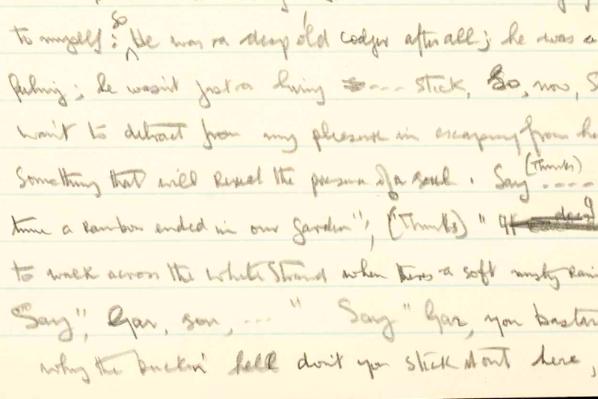 to myself: So He was a deep old codger after all; he was a
feeling; he wasn't just a living .... stick, So, now, S
want to detract from my pleasure in escaping from
Something that will reveal the presence of a soul. Say (Thinks) ....
time a rainbow ended in our garden"; (Thinks) "
to walk across the White Strand when there's a soft misty rain
Say", Gar, son, .... " Say "Gar, you bastar
why the buckin' hell don't you stick it out here,